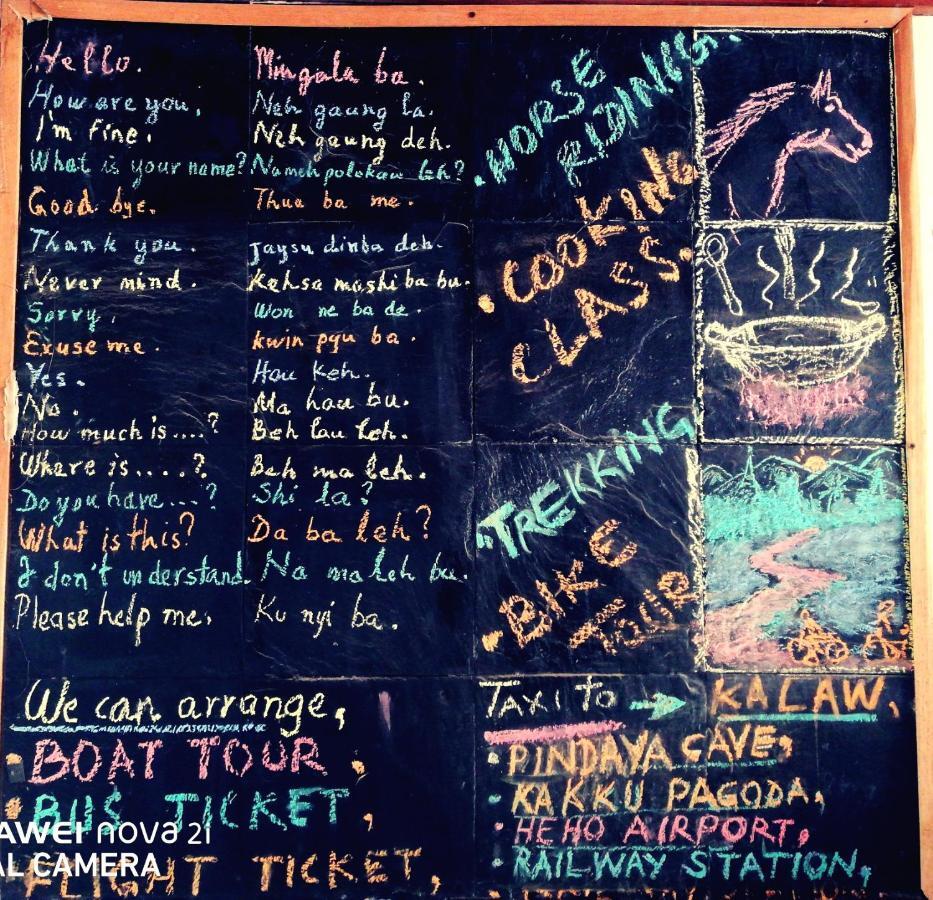 Hello. Mingala ba.
How are you, Neh gaung la.
I'm fine. Neh gaung deh.
What is your name? Nameh polokaw leh?
Good bye. Thua ba me.
Thank you. Jaysu dinba deh.
Never mind. Kehsa mashiba bu.
Sorry, Won ne ba de.
Exuse me. Kwin pyu ba.
Yes. Hou Keh.
No. Ma hou bu.
How much is ....? Beh lau leh.
Where is ....? Beh ma leh.
Do you have ....? Shi la?
What is this? Da ba leh?
I don't understand. Na ma leh bu.
Please help me. Ku nyi ba.
• HORSE
RIDINGS.
• COOKING
CLASS.
• TREKKING
• BIKE
TOUR
We can arrange,
• BOAT TOUR,
• BUS TICKET,
FLIGHT TICKET,
TAXI to → KALAW,
• PINDAYA CAVE,
• KAKKU PAGODA,
• HEHO AIRPORT,
• RAILWAY STATION,
AWEI nova 2i
AL CAMERA